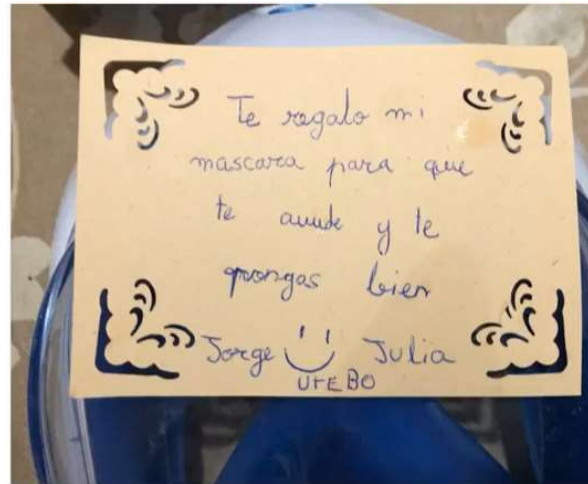 Te regalo mi
mascara para que
te auude y te
pongas bien
Jorge Julia
UTEBO